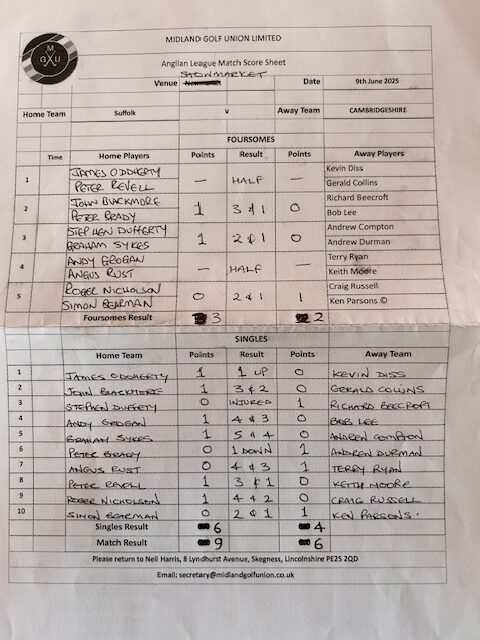 MIDLAND GOLF UNION LIMITED
M G U
Anglian League Match Score Sheet
STOWMARKET
Venue Date 9th June 2025
Home Team Suffolk v Away Team CAMBRIDGESHIRE
FOURSOMES
Time Home Players Points Result Points Away Players
1 JAMES ODOHERTY — HALF — Kevin Diss
PETER REVELL Gerald Collins
2 JOHN BLACKMORE 1 3 & 1 0 Richard Beecroft
PETER BRADY Bob Lee
3 STEPHEN DUFFERTY 1 2 & 1 0 Andrew Compton
GRAHAM SYKES Andrew Durman
4 ANDY GROGAN — HALF — Terry Ryan
ANGUS RUST Keith Moore
5 ROGER NICHOLSON 0 2 & 1 1 Craig Russell
SIMON BEARMAN Ken Parsons ©
Foursomes Result 3 2
SINGLES
Home Team Points Result Points Away Team
1 JAMES ODOHERTY 1 1 UP 0 KEVIN DISS
2 JOHN BLACKMORE 1 3 & 2 0 GERALD COLLINS
3 STEPHEN DUFFERTY 0 INJURED 1 RICHARD BEECROFT
4 ANDY GROGAN 1 4 & 3 0 BOB LEE
5 GRAHAM SYKES 1 5 & 4 0 ANDREW COMPTON
6 PETER BRADY 0 1 DOWN 1 ANDREW DURMAN
7 ANGUS RUST 0 4 & 3 1 TERRY RYAN
8 PETER REVELL 1 3 & 1 0 KEITH MOORE
9 ROGER NICHOLSON 1 4 & 2 0 CRAIG RUSSELL
10 SIMON BEARMAN 0 2 & 1 1 KEN PARSONS
Singles Result 6 4
Match Result 9 6
Please return to Neil Harris, 8 Lyndhurst Avenue, Skegness, Lincolnshire PE25 2QD
Email: secretary@midlandgolfunion.co.uk